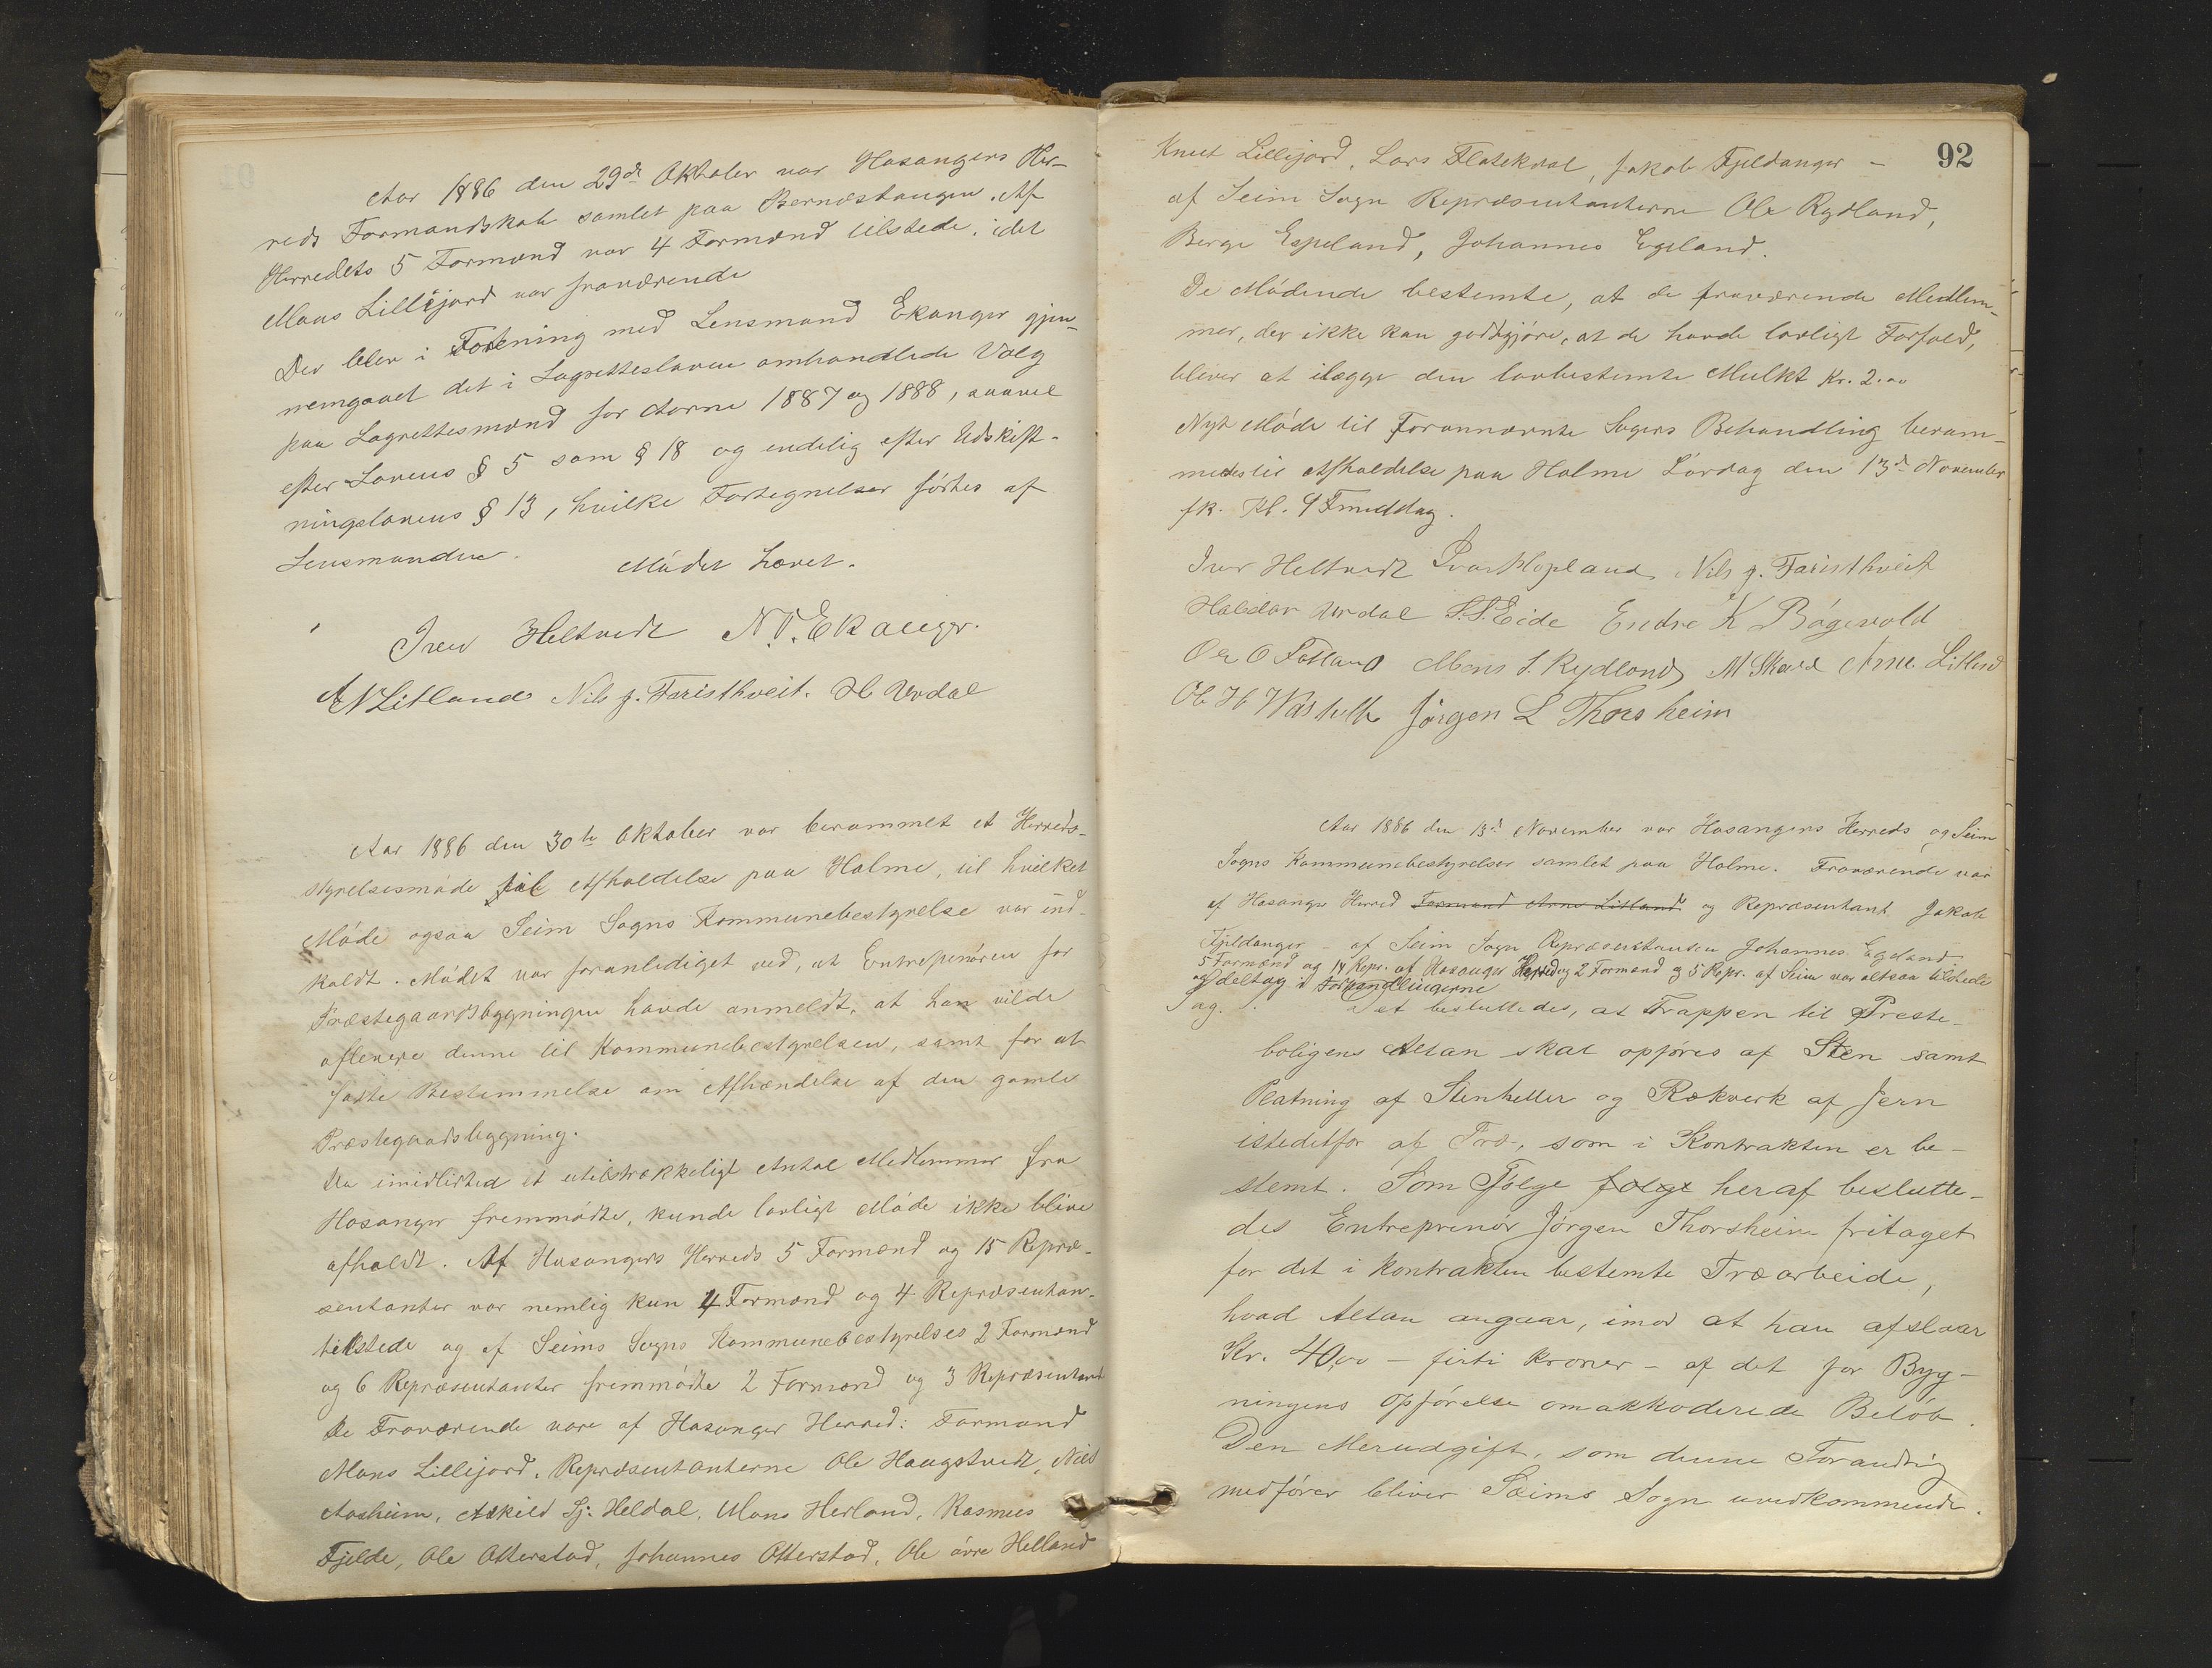 Aar 1886 den 29de Oktober var Hosangers Her-
reds Formandskab samlet paa Bernæstangen. Af
Herredets 5 Formænd var 4 Formænd tilstede, idet
Mons Lillejord var fraværende
Der blev i Forening med Lensmand Ekanger gjen-
nemgaaet det i Lagretteslovens omhandlede Valg
paa Lagrettesmænd for Aarne 1887 og 1888, saavel
efter Lovens § 5 som § 18 og endelig efter Udskift-
ningslovens § 13, hvilke Fortegnelser förtes af
Lensmanden.
Mödet hævet.
Iver Heltvedt N. T. Ekanger.
A N Litland Nils J. Faristhveit. H Urdal
Aar 1886 den 30te Oktober var berammet et Herreds-
styrelsesmöde til Afholdelse paa Holme, til hvilket
Möde ogsaa Seim Sogns Kommunebestyrelse var ind-
kaldt. Mödet var foranlediget ved, at Entreprenören for
Præstegaardsbygningen havde anmeldt, at han vilde
aflevere denne til Kommunebestyrelsen, samt for at
fatte Bestemmelse om Afhændelse af den gamle
Præstegaardsbygning.
Da imidlertid et utilstrækkeligt Antal Medlemmer fra
Hosanger fremmödte, kunde lovligt Möde ikke blive
afholdt. Af Hosangers Herreds 5 Formænd og 15 Repræ-
sentanter var nemlig kun 4 Formænd og 4 Repræsentan-
tilstede og af Seims Sogns Kommunebestyrelses 2 Formænd
og 6 Repræsentanter fremmödte 2 Formænd og 3 Repræsentant
De Fraværende vare af Hosanger Herred: Formand
Mons Lillejord, Repræsentanterne Ole Haugstvedt, Nils
Aasheim, Askild Sj. Heldal, Mons Herland, Rasmus
Fjelde, Ole Otterstad, Johannes Otterstad, Ole övre Helland
92
Knut Lillejord, Lars Flatekval, Jakob Fjeldanger –
af Seim Sogn Repræsentanterne Ole Rydland,
Berge Espeland, Johannes Egeland.
De Mödende bestemte, at de fraværende Medlem-
mer, der ikke kan godtgjöre, at de havde lovligt Forfald,
bliver at ilægge den lovbestemte Mulkt Kr. 2.00
Nyt Möde til Forannævnte Sagers Behandling beram-
medes til Afholdelse paa Holme Lördag den 13de November
fk. Kl. 9 Fmiddag.
Iver Heltvedt Ivar Hopland Nils J. Faristhveit
Haldor Urdal S. S. Eide Endre K Bögevold
Ole O Fotland Mons S. Rydland M Skare Arne Litland
Ole H Jörgen L Thorsheim
Aar 1886 den 13de November var Hosangers Herreds og Seim
Sogns Kommunebestyrelser samlet paa Holme. Fraværende var
af Hosanger Herred Formand Arne Litland og Repræsentant Jakob
Fjeldanger – af Seim Sogn Repræsentanten Johannes Egeland
5 Formænd og 14 Repr. af Hosanger Herred og 2 Formænd og 5 Repr. af Seim var altsaa tilstede
og deltog i Forhandlingerne
Sag. 1. Det besluttedes, at Trappen til Præste-
boligens Altan skal opföres af Sten samt
Platning af Stenheller og Rækverk af Jern
istedetfor af Træ, som i Kontrakten er be-
stemt. Som Fölge folge heraf beslutte-
des Entreprenör Jörgen Thorsheim fritaget
for det i Kontrakten bestemte Træarbeide,
hvad Altan angaar, imod at han afslaar
Kr. 40,00 – firti Kroner – af det for Byg-
ningens Opförelse omakkoderede Belöb.
Den Merudgift, som denne Forandring
medförer bliver Seims Sogn uvedkommende.